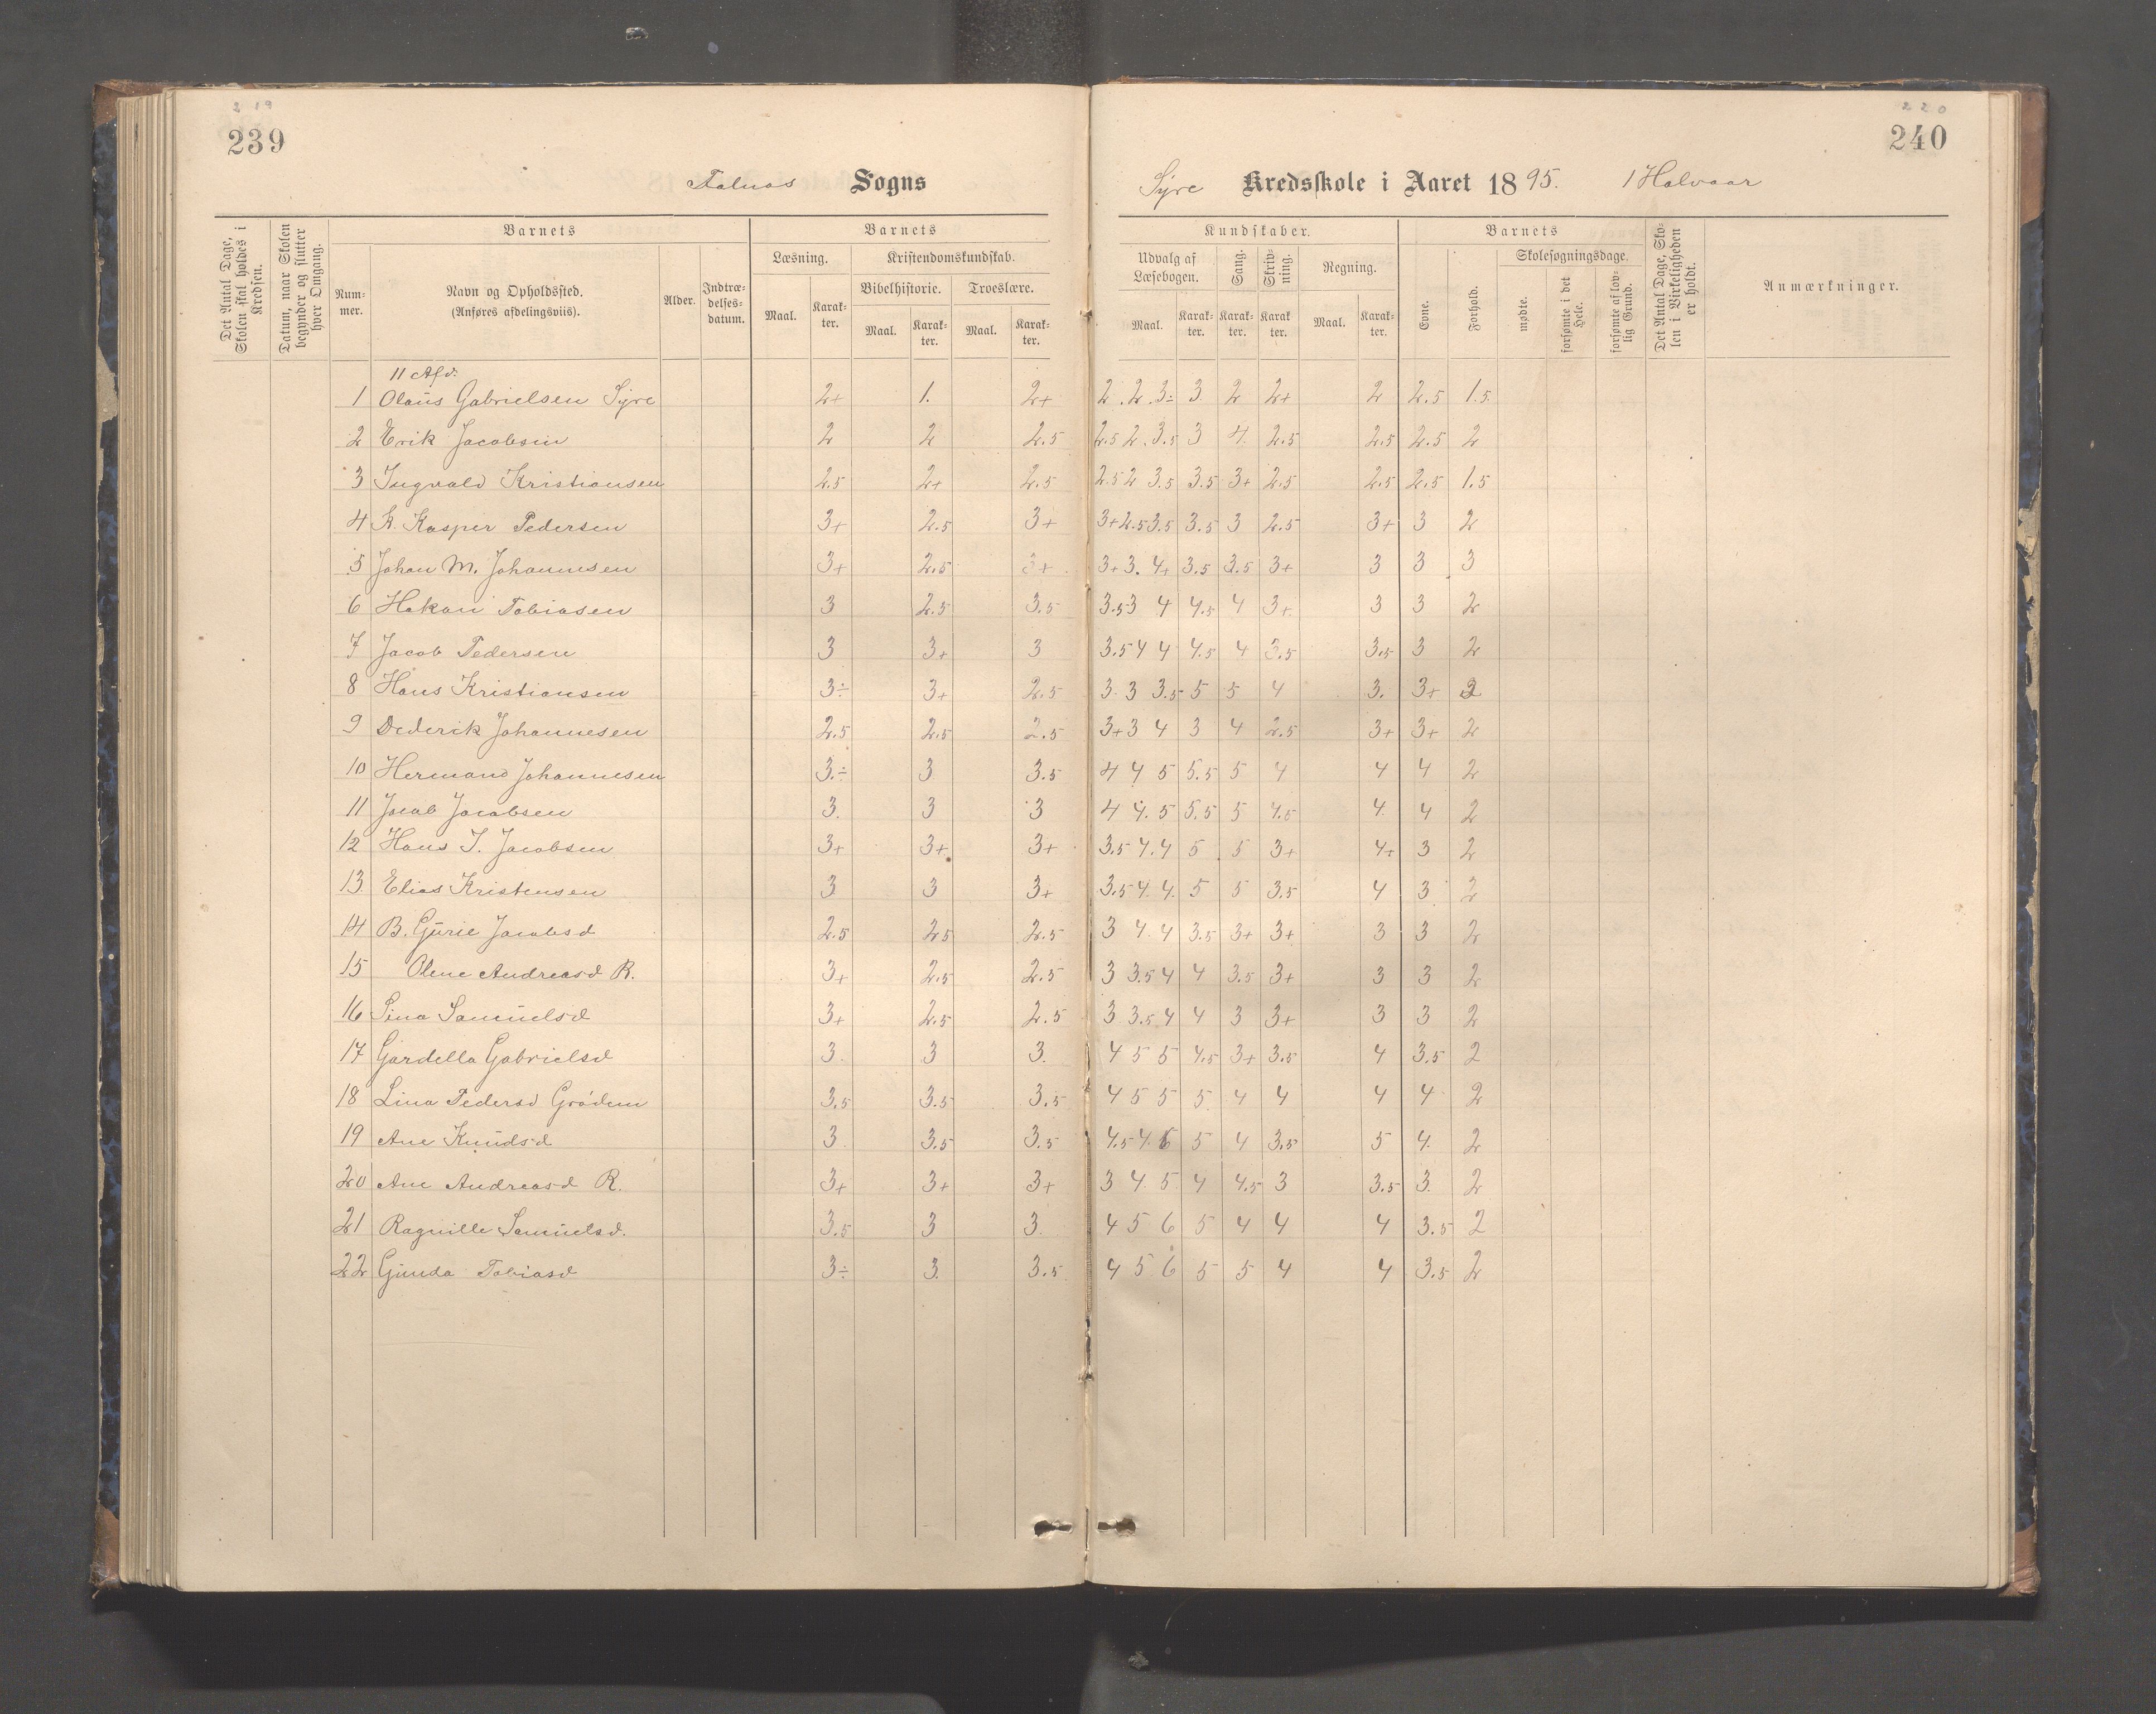 219
239
Falnæs Sogns
220
240
Syre Kredsskole i Aaret 1895. 1 Halvaar
Det Antal Dage, Skolen skal holdes i Kredsen.
Datum, naar Skolen begynder og slutter hver Omgang.
Barnets
Num-mer.
Navn og Opholdssted.
(Anføres afdelingsviis).
Alder.
Indtræ-delses-datum.
Barnets
Læsning.
Maal. Karak-ter.
Kristendomskundskab.
Bibelhistorie. Troeslære.
Maal. Karak-ter. Maal. Karak-ter.
Kundskaber.
Udvalg af Læsebogen. Sang. Skriv-ning. Regning.
Maal. Karak-ter. Karak-ter. Karak-ter. Maal. Karak-ter.
Barnets
Evne. Forhold.
Skolesøgningsdage.
mødte. forsømte i det Hele. forsømte af lov-lig Grund.
Det Antal Dage, Sko-len i Virkeligheden er holdt.
Anmærkninger.
11 Afd:
1 Olaus Gabrielsen Syre 2+ 1. 2+ 2. 2. 3÷ 3 2 2+ 2 2.5 1.5
2 Erik Jacobsen 2 2 2.5 2.5 2. 3.5 3 4. 2.5 2.5 2.5 2
3 Ingvald Kristiansen 2.5 2+ 2.5 2.5 2 3.5 3.5 3+ 2.5 2.5 2.5 1.5
4 K. Kasper Pedersen 3+ 2.5 3+ 3+ 2.5 3.5 3.5 3 2.5 3+ 3 2
5 Johan M. Johannesen 3+ 2.5 3+ 3+ 3. 4+ 3.5 3.5 3+ 3 3 3
6 Hakon Tobiasen 3 2.5 3.5 3.5 3 4 4.5 4 3+ 3 3 2
7 Jacob Pedersen 3 3+ 3 3.5 4 4 4.5 4 3.5 3.5 3 2
8 Hans Kristiansen 3÷ 3+ 2.5 3. 3 3.5 5 5 4 3. 3+ 2
9 Dederik Johannesen 2.5 2.5 2.5 3+ 3 4 3 4 2.5 3+ 3+ 2
10 Hermand Johannesen 3.÷ 3 3.5 4 4 5 5.5 5 4 4 4 2
11 Jacob Jacobsen 3. 3 3 4 4. 5 5.5 5 4.5 4. 4 2
12 Hans J. Jacobsen 3+ 3+ 3+ 3.5 4. 4 5 5 3+ 4+ 3 2
13 Elias Kristensen 3 3 3+ 3.5 4. 4. 5 5 3.5 4 3 2
14 B. Gurie Jacobsd 2.5 2.5 2.5 3 4. 4 3.5 3+ 3+ 3 3 2
15 Olene Andreasd R. 3+ 2.5 2.5 3 3.5 4 4 3.5 3+ 3 3 2
16 Sina Samuelsd 3+ 2.5 2.5 3 3.5 4 4 3 3+ 3 3 2
17 Gardella Gabrielsd 3. 3 3. 4 5 5 4.5 3+ 3.5 4 3.5 2
18 Lina Pedersd Grødem 3.5 3.5 3.5 4 5 5 5 4 4 4 4 2
19 Ane Knudsd 3. 3.5 3.5 4.5 4. 6 5 4 3.5 5 4. 2
20 Ane Andreasd R. 3+ 3+ 3+ 3 4 5 4 4.5 3 3.5 3. 2
21 Ragnille Samuelsd. 3.5 3 3. 4 5 6 5 4 4 4 3.5 2
22 Gunda Tobiasd 3÷ 3. 3.5 4 5 6 5 5 4 4 3.5 2